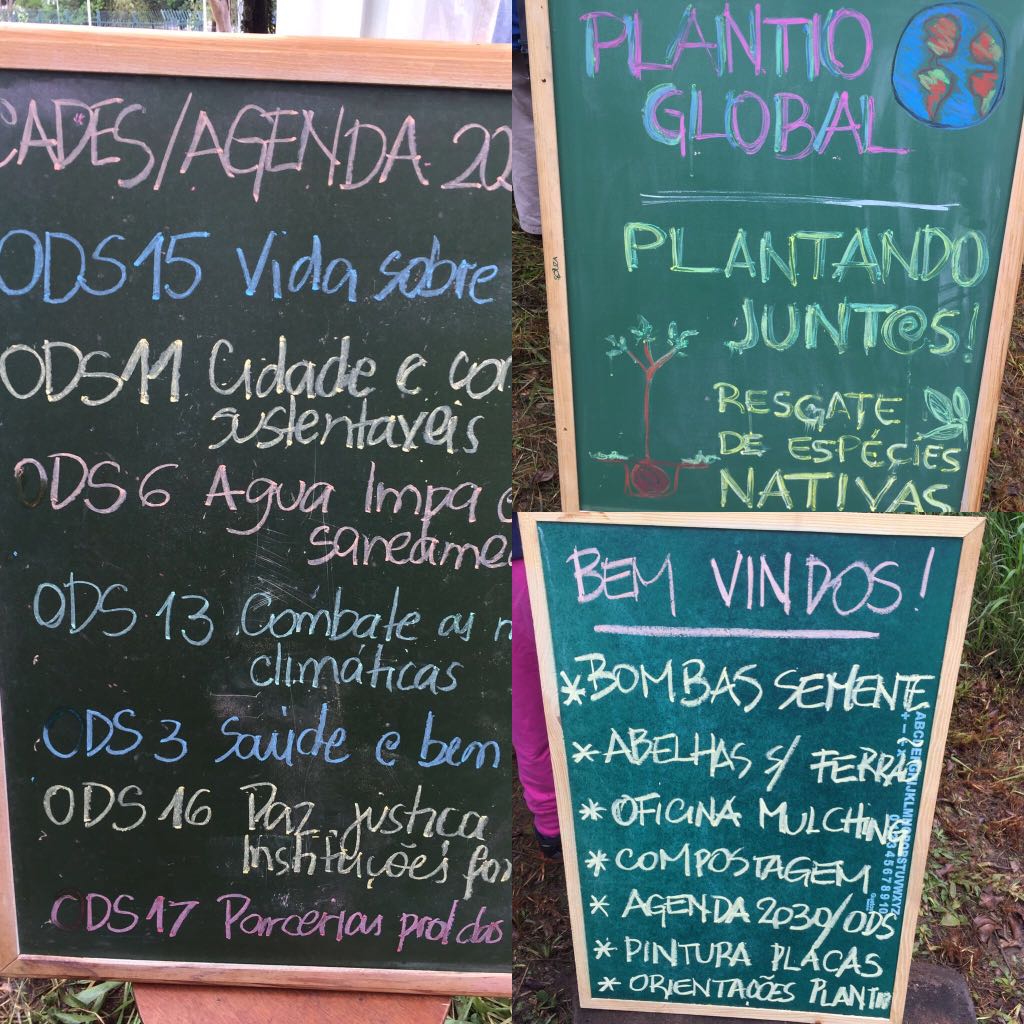 CADES/AGENDA 20
ODS 15 Vida sobre
ODS 11 Cidade e com
sustentaveis
ODS 6 Agua Impa e
saneame
ODS 13 Combate as m
climáticas
ODS 3 Saúde e bem
ODS 16 Paz, justiça
Instituições for
ODS 17 Parcerias prol das
PLANTIO
GLOBAL
PLANTANDO
JUNT@S!
RESGATE
DE ESPÉCIES
NATIVAS
BEM VINDOS!
* BOMBAS SEMENTE
* ABELHAS S/ FERRÃ
* OFICINA MULCHING
* COMPOSTAGEM
* AGENDA 2030/ODS
* PINTURA PLACAS
* ORIENTAÇÕES PLANTIO